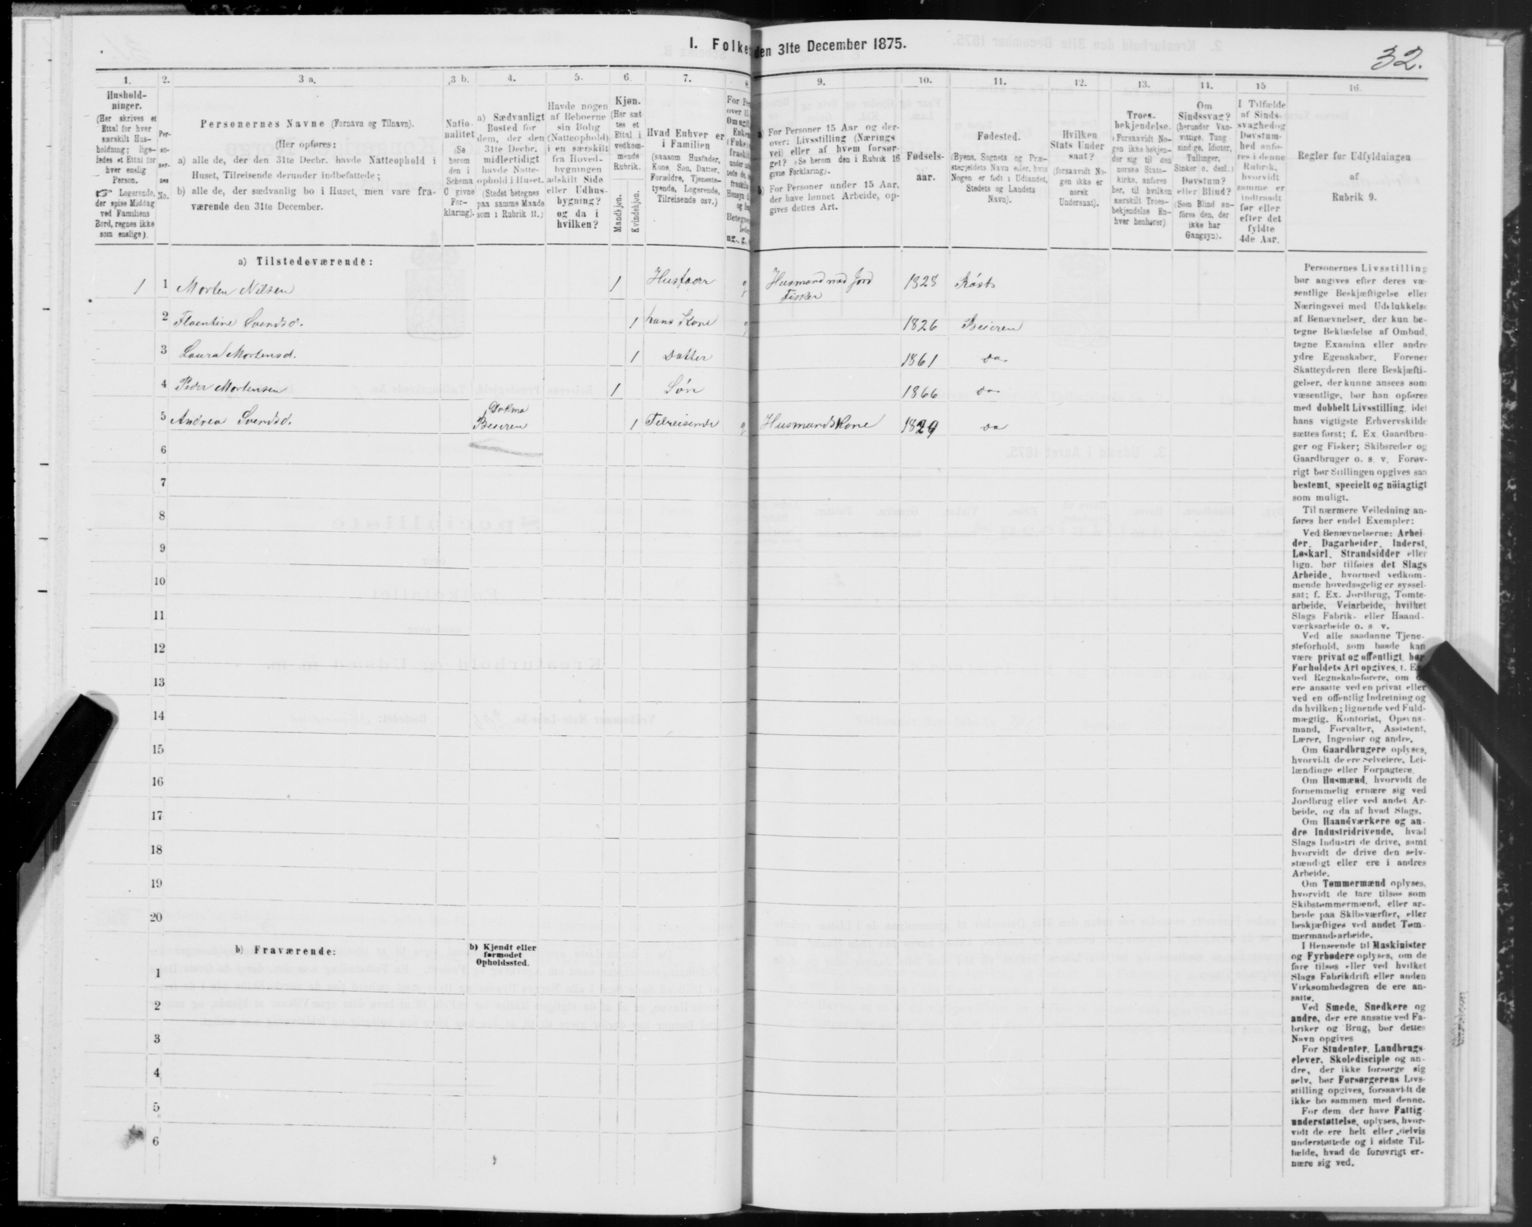 I. Folke
den 31te December 1875.
32.
1.
2.
3 a.
3 b.
4.
5.
6.
7.
8
9.
10.
11.
12.
13.
14.
15
16.
Hushold-
ninger.
(Her skrives et
Ettal for hver
særskilt Hus-
holdning; lige-
ledes et Ettal for
hver enslig
Person.
Logerende,
der spise Middag
ved Familiens
Bord, regnes ikke
som enslige).
Per-
so-
ner-
nes
No.
Personernes Navne (Fornavn og Tilnavn).
(Her opføres:
a) alle de, der den 31te Decbr. havde Natteophold i
Huset, Tilreisende derunder indbefattede;
b) alle de, der sædvanlig bo i Huset, men vare fra-
værende den 31te December.
Natio-
nalitet
(Se
herom
den i
Schema
C givne
For-
klaring).
a) Sædvanligt
Bosted for
dem, der den
31te Decbr.
midlertidigt
havde Natte-
ophold i Huset.
(Stedet betegnes
paa samme Maade
som i Rubrik 11.)
Havde nogen
af Beboerne
sin Bolig
(Natteophold)
i en særskilt
fra Hoved-
bygningen
adskilt Side
eller Udhus-
bygning?
og da i
hvilken?
Kjøn.
(Her sæt
tes et
Ettal i
vedkom-
mende
Rubrik.
Mandkjøn.
Kvindekjøn.
Hvad Enhver er
i Familien
(saasom Husfader,
Kone, Søn, Datter,
Forældre, Tjeneste-
tyende, Logerende,
Tilreisende osv.)
a) For Personer 15 Aar og der-
over: Livsstilling (Nærings
vei) eller af hvem forsør-
get? (Se herom den i Rubrik 16
givne Forklaring).
b) For Personer under 15 Aar,
der have lønnet Arbeide, op-
gives dettes Art.
Fødsels-
aar.
Fødested.
(Byens, Sognets og Præ-
stegjeldets Navn eller, hvis
Nogen er født i Udlandet,
Stedets og Landets
Navn).
Hvilken
Stats Under
saat?
(forsaavidt No-
gen ikke er
norsk
Undersaat).
Troes-
bekjendelse.
(Forsaavidt No-
gen ikke bekjen-
der sig til den
norske Stats-
kirke, anføres
her, til hvilken
særskilt Troes-
bekjendelse En-
hver henhører)
Om
Sindssvag?
(herunder Van-
vittige, Tung
sindige, Idioter,
Tullinger,
Sinker o. desl.)
Døvstum?
eller Blind?
(Som Blind an-
føres den, der
ikke har
Gangsyn).
I Tilfælde
af Sinds-
svaghed og
Døvstum-
hed anfø-
res i denne
Rubrik,
hvorvidt
samme er
indtraadt
før eller
efter det
fyldte
4de Aar.
Regler for Udfyldningen
af
Rubrik 9.
a) Tilstedeværende:
1 1 Morten Nilsen 1 Husfader g Husmand med Jord 1828 Røst
Fisker
2 Florentine Svendsd. 1 hans Kone g 1826 Beieren
3 Laura Mortensd. 1 Datter 1861 do
4 Peder Mortensen 1 Søn 1866 do
5 Andrea Svendsd. Beieren 1 Tilreisende g Husmandskone 1829 do
6
7
8
9
10
11
12
13
14
15
16
17
18
19
20
b) Fraværende:
b) Kjendt eller
formodet
Opholdssted.
1
2
3
4
5
6
Personernes Livsstilling
bør angives efter deres væ-
sentlige Beskjæftigelse eller
Næringsvei med Udelukkelse
af Benævnelser, der kun be-
tegne Beklædelse af Ombud,
tagne Examina eller andre
ydre Egenskaber. Forener
Skatteyderen flere Beskjæfti-
gelser, der kunne ansees som
væsentlige, bør han opføres
med dobbelt Livsstilling, idet
hans vigtigste Erhvervskilde
sættes først; f. Ex. Gaardbru-
ger og Fisker; Skibsreder og
Gaardbruger o. s. v. Forøv-
rigt bør Stillingen opgives saa
bestemt, specielt og nøiagtigt
som muligt.
Til nærmere Veiledning an-
føres her endel Exempler:
Ved Benævnelserne: Arbei-
der, Dagarbeider, Inderst,
Løskarl, Strandsidder eller
lign. bør tilføies det Slags
Arbeide, hvormed vedkom-
mende hovedsagelig er syssel-
sat; f. Ex. Jordbrug, Tomte-
arbeide, Veiarbeide, hvilket
Slags Fabrik- eller Haand-
værksarbeide o. s. v.
Ved alle saadanne Tjene-
steforhold, som baade kan
være privat og offentligt, bør
Forholdets Art opgives, f. Ex.
ved Regnskabsførere, om de
ere ansatte ved en privat eller
ved en offentlig Indretning og
da hvilken; lignende ved Fuld-
mægtig, Kontorist, Opsyns-
mand, Forvalter, Assistent,
Lærer, Ingeniør og andre.
Om Gaardbrugere oplyses,
hvorvidt de ere Selveiere, Lei-
lændinge eller Forpagtere.
Om Husmænd, hvorvidt de
fornemmelig ernære sig ved
Jordbrug eller ved andet Ar-
beide, og da af hvad Slags.
Om Haandværkere og an-
dre Industridrivende, hvad
Slags Industri de drive, samt
hvorvidt de drive den selv-
stændigt eller ere i andres
Arbeide.
Om Tømmermænd oplyses,
hvorvidt de fare tilsøs som
Skibstømmermænd, eller ar-
beide paa Skibsværfter, eller
beskjæftiges ved andet Tøm-
mermandsarbeide.
I Henseende til Maskinister
og Fyrbødere oplyses, om de
fare tilsøs eller ved hvilket
Slags Fabrikdrift eller anden
Virksomhedsgren de ere an-
satte.
Ved Smede, Snedkere og
andre, der ere ansatte ved Fa-
briker og Brug, bør dettes
Navn opgives
For Studenter, Landbrugs-
elever, Skoledisciple og an-
dre, der ikke forsørge sig
selv, bør Forsørgerens Livs-
stilling opgives, forsaavidt de
ikke bo sammen med denne.
For dem, der have Fattig-
understøttelse, oplyses, hvor-
vidt de ere helt eller delvis
understøttede og i sidste Til-
fælde, hvad de forøvrigt er-
nære sig ved.